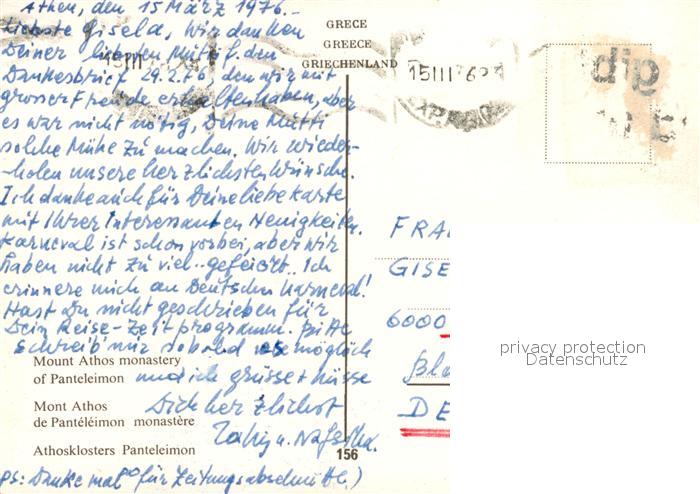 Athen, den 15 März 1976.-
Liebste Gisela, Wir danken
Deiner liebsten Mutti f. den
Dankesbrief 29.2.76, den wir mit
grosser Freude erhalten haben, aber
es war nicht nötig, Deine Mutti
solche Mühe zu machen. Wir wieder-
holen unsere herzlichsten Wünsche.
Ich danke auch für Deine liebe Karte
mit Ihrer Interessanten Neuigkeiten.
Karneval ist schon vorbei, aber wir
haben nicht zu viel gefeiert. Ich
erinnere mich an Deutschen Karneval!
Hast Du nicht geschrieben für
Dein Reise-Zeit programm. Bitte
Schreib mir sobald es möglich
und ich grüsse + küsse
Dich herzlichst
PS: Danke mal für Zeitungsabschnitte!)
GRECE
GREECE
GRIECHENLAND
15III76
dip
FRA
GISE
6000
DE
privacy protection
Datenschutz
Mount Athos monastery
of Panteleimon
Mont Athos
de Pantéléimon monastère
Athosklosters Panteleimon
156